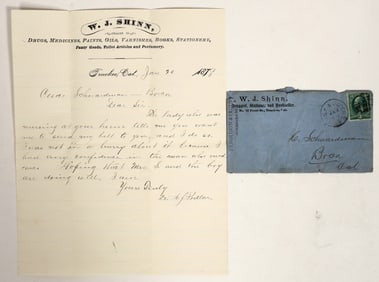 W. J. SHINN,
DRUGS, MEDICINES, PAINTS, OILS, VARNISHES, BOOKS, STATIONERY,
Fancy Goods, Toilet Articles and Perfumery.
Truckee, Cal., Jan 1878
Boca
Dear Sir
The lady who was
nursing at your house tells me you want
me to send my bill to you, and I do so.
I was not in a hurry about it because I
had every confidence in the man who owed
me. Hoping that Mrs. S and the boy
are doing well, I am
Yours Truly
W. J. Shinn,
Druggist, Stationer and Bookseller,
Truckee, Cal.
Boca
Cal